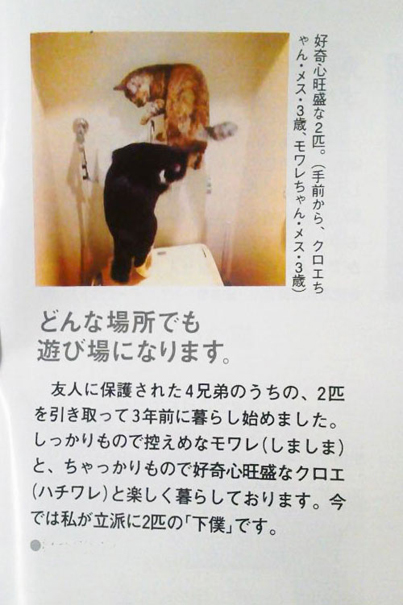 好奇心旺盛な2匹。(手前から、クロエち
ゃん・メス・3歳、モワレちゃん・メス・3歳)
どんな場所でも
遊び場になります。
友人に保護された4兄弟のうちの、2匹
を引き取って3年前に暮らし始めました。
しっかりもので控えめなモワレ(しましま)
と、ちゃっかりもので好奇心旺盛なクロエ
(ハチワレ)と楽しく暮らしております。今
では私が立派に2匹の「下僕」です。